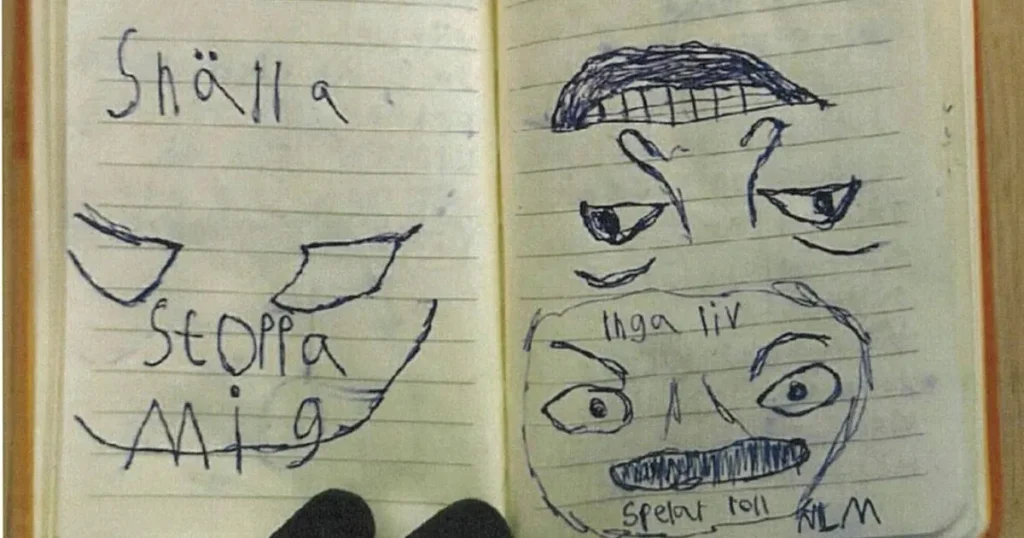 Snälla
Stoppa
mig
Inga liv
spelar roll
NLM